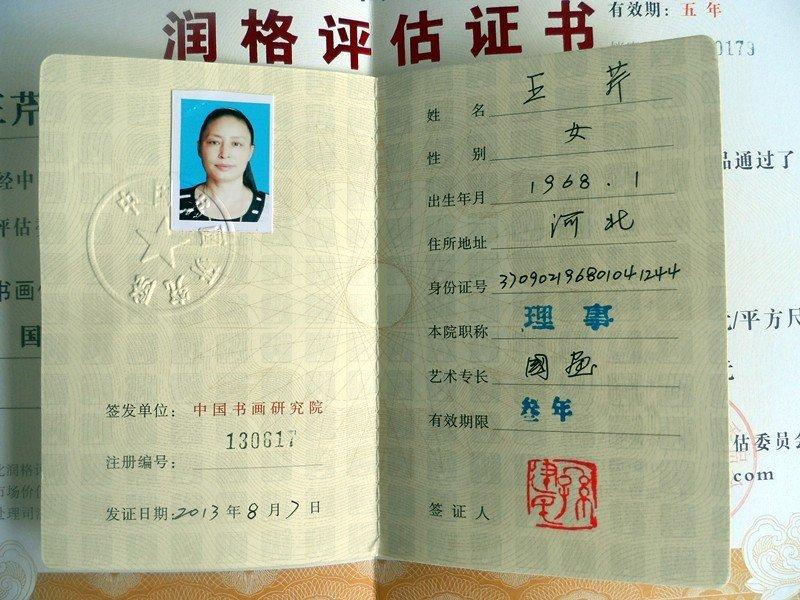 润格评估证书
有效期：五年
王芹
签发单位：中国书画研究院
注册编号：130817
发证日期：2013年8月7日
姓 名 王芹
性 别 女
出生年月 1968.1
住所地址 河北
身份证号 370902196801041244
本院职称 理事
艺术专长 國画
有效期限 叁年
签证人
品通过了
经中
评估委
书画作
国
元/平方尺
元
估委员会
.com